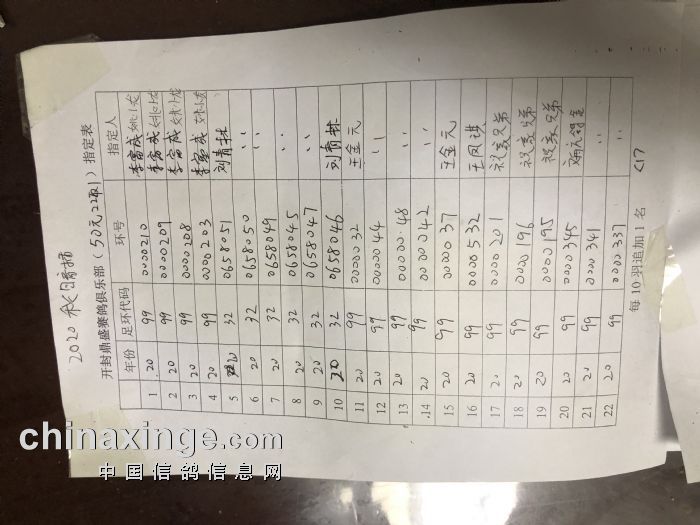 2020 秋 指
开封鼎盛赛鸽俱乐部（50元22取1）指定表
年份 足环代码 环号 指定人
1 20 99 0000210 李富成
2 20 99 0000209 李富成
3 20 99 0000208 李富成
4 20 99 0000203 李富成
5 20 32 0658051 刘青林
6 20 32 0658050 〃
7 20 32 0658049 〃
8 20 32 0658045 〃
9 20 32 0658047 〃
10 20 32 0658046 刘青林
11 20 99 0000032 王金元
12 20 99 0000044 〃
13 20 99 0000048 〃
14 20 99 0000042 〃
15 20 99 0000037 王金元
16 20 99 0000532 王凤琪
17 20 99 0000201 祝家兄弟
18 20 99 0000196 祝家兄弟
19 20 99 0000195 祝家兄弟
20 20 99 0000345
21 20 99 0000341 〃
22 20 99 0000337 〃
每10羽追加1名
chinaxinge.com
中国信鸽信息网